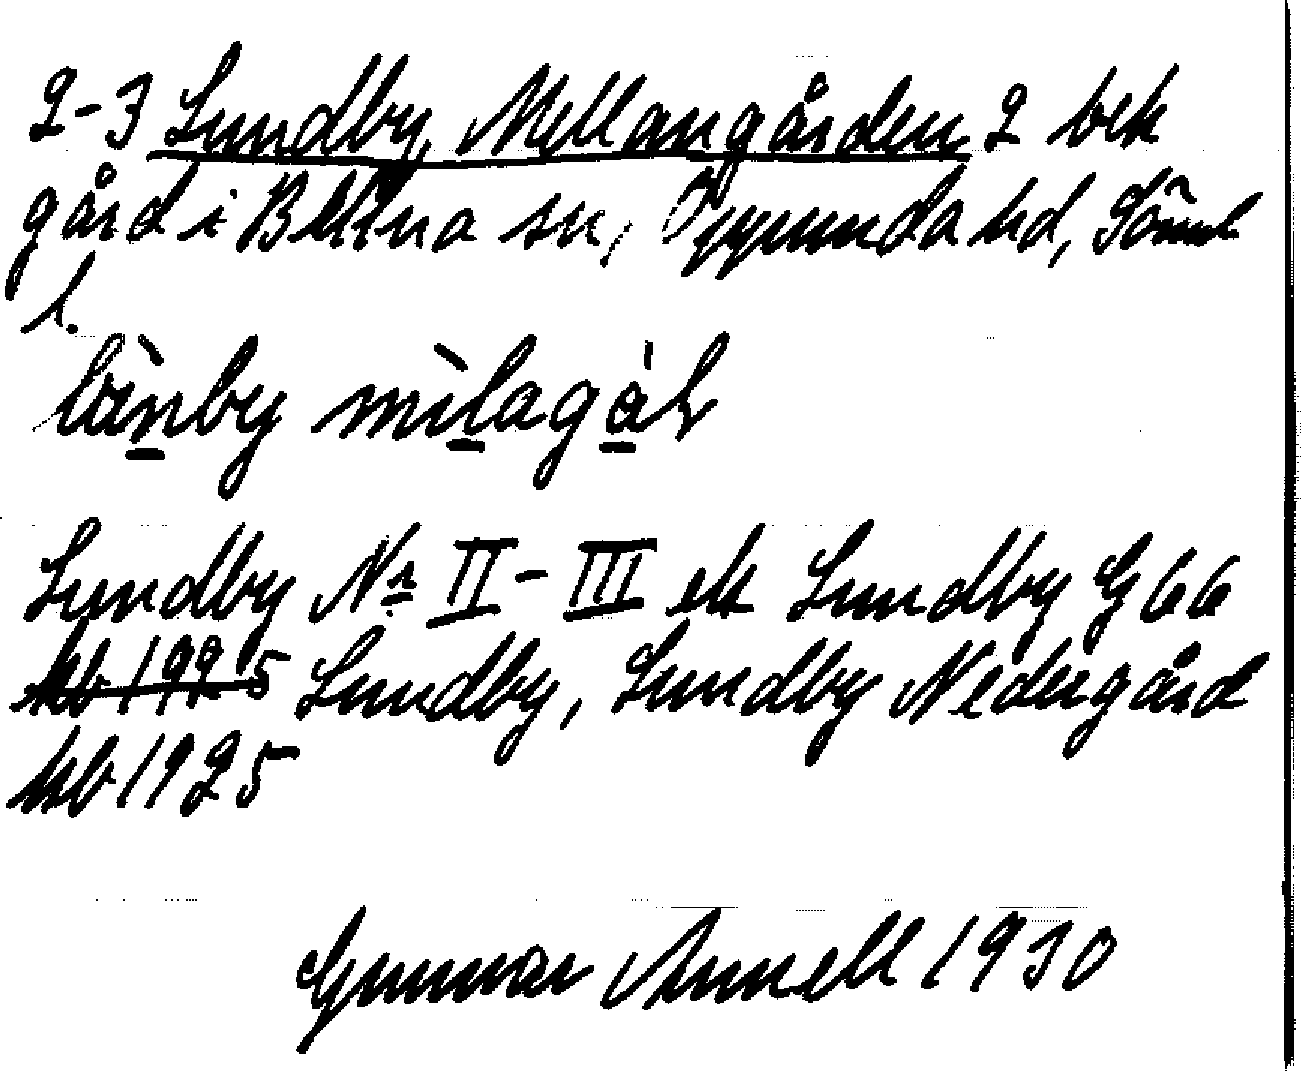 2-3 Lundby, Mellangården 2 bek
gård i Bettna sn, Oppunda hd, Söml
l.
lànby mìlagàḷ
Lundby No II-III ek Lundby G 66
hb 1925 Lundby, Lundby Nedergård
hb 1925
Gunnar Annell 1930